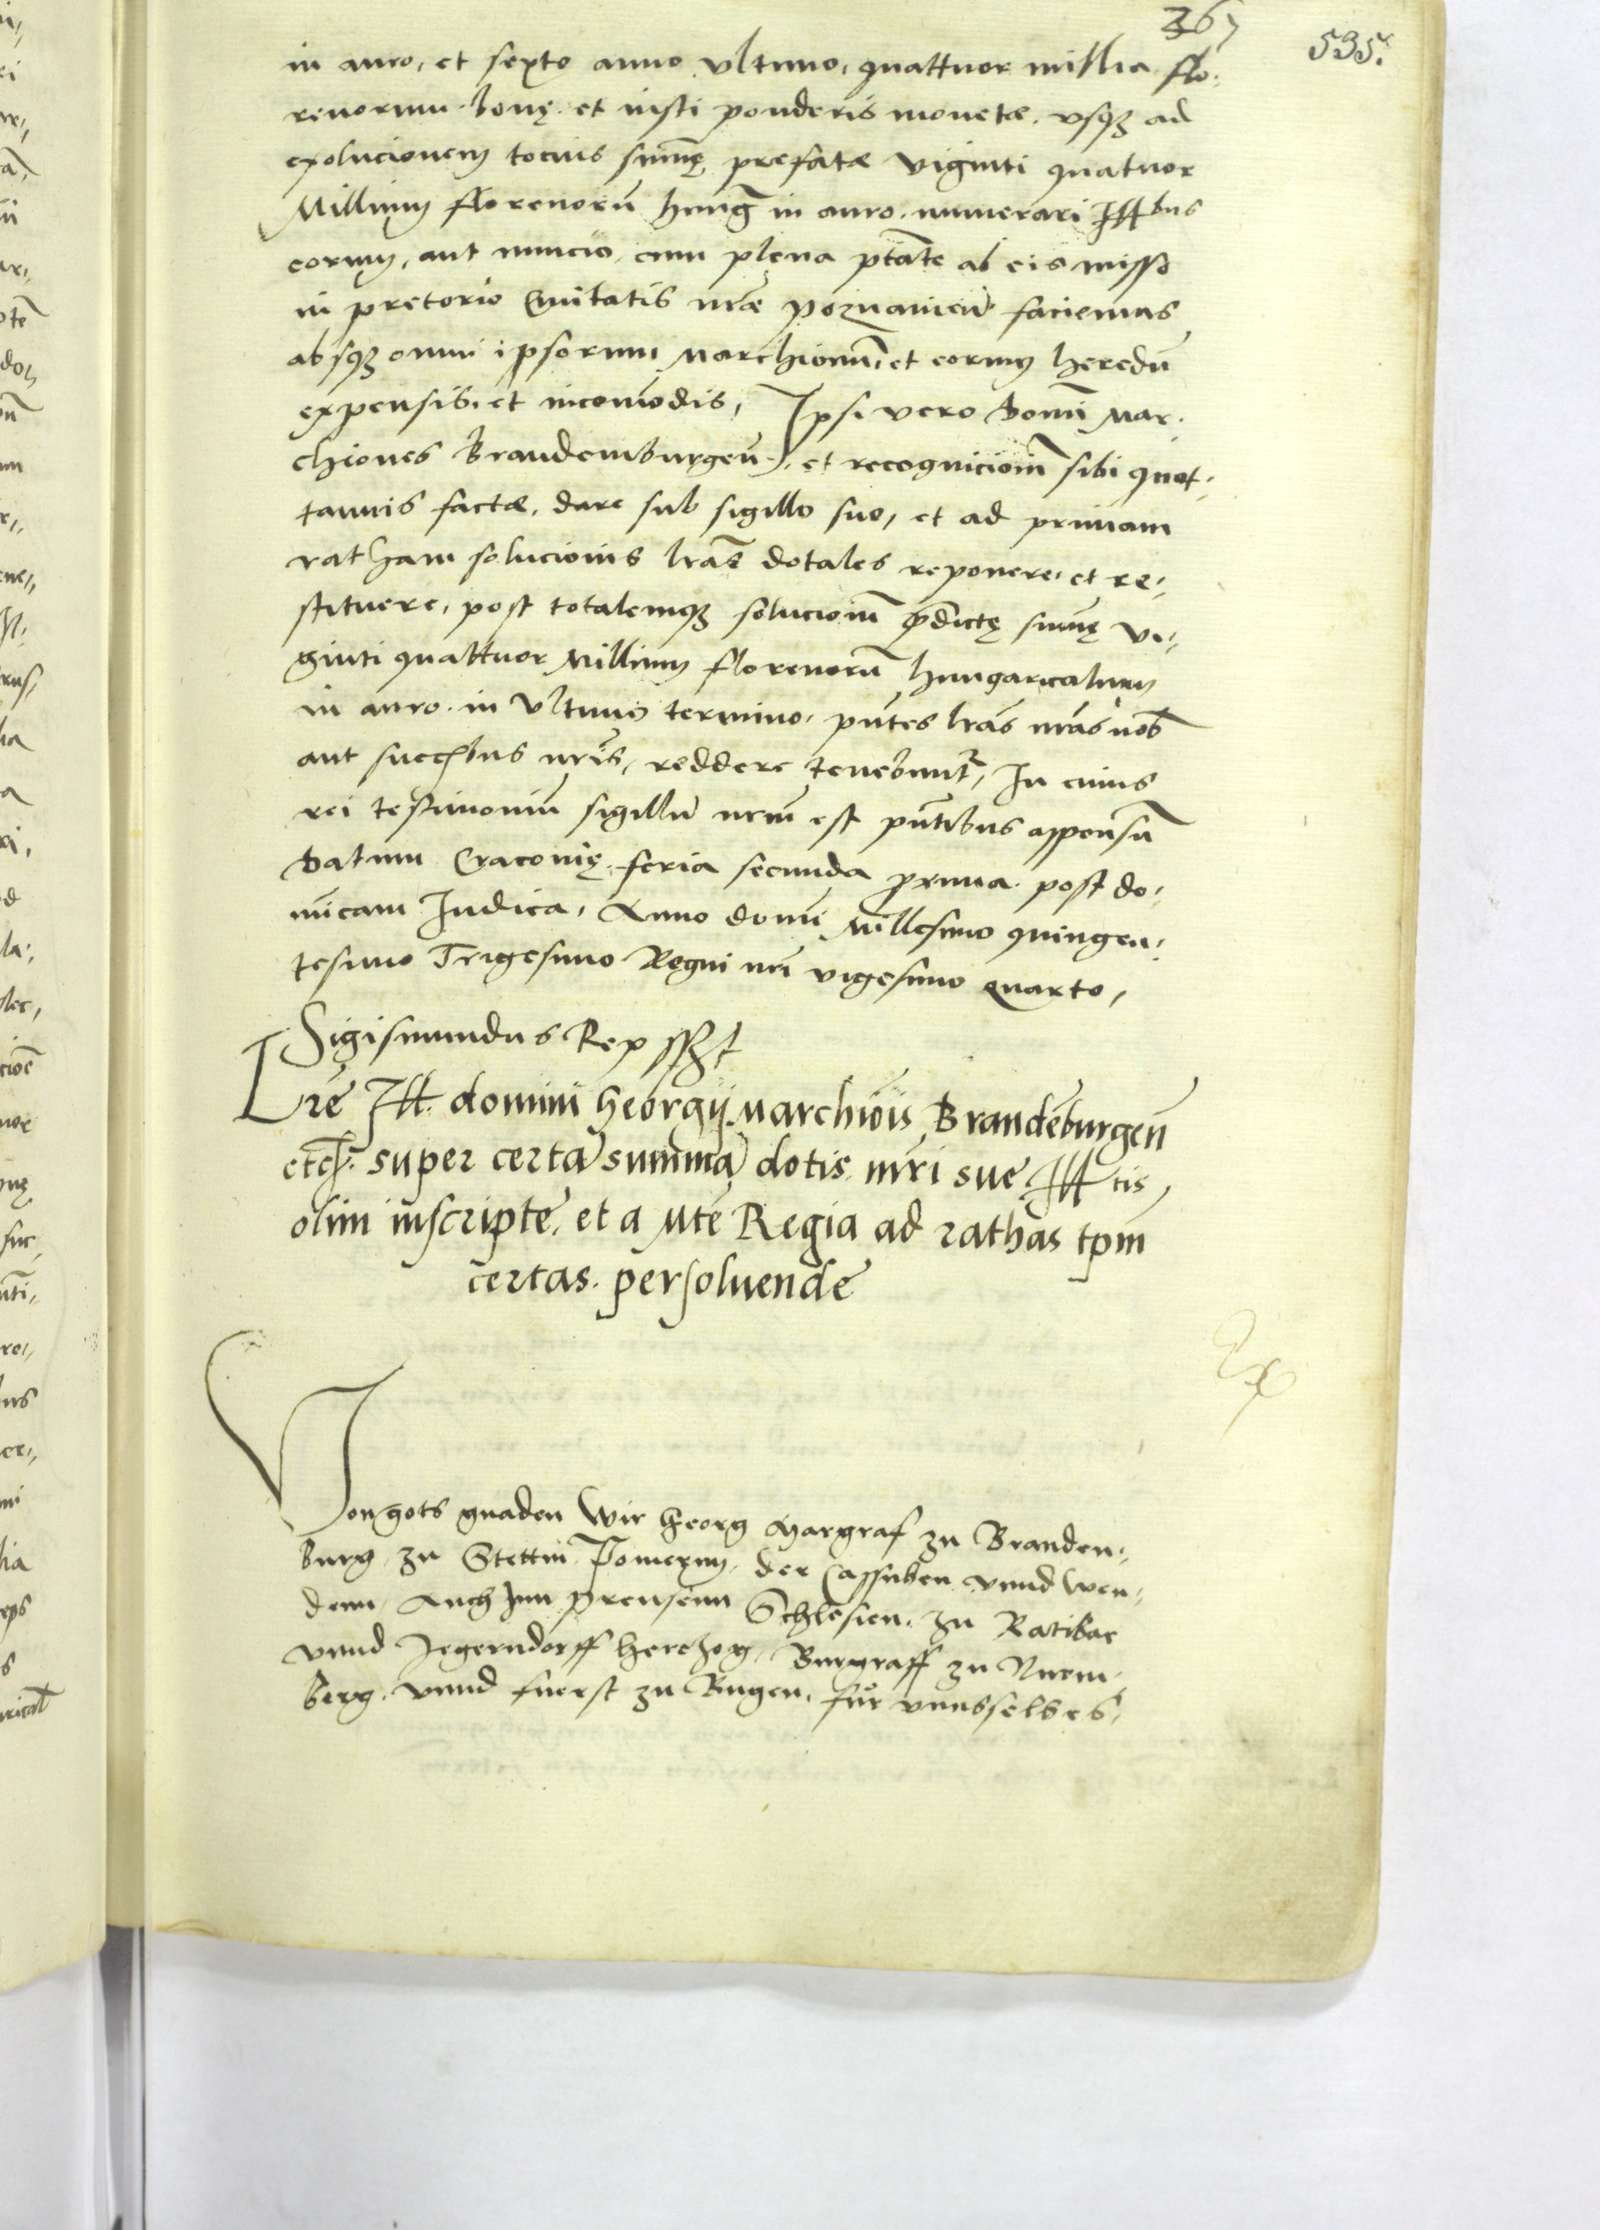 367
535.
in auro, et sexto anno ultimo, quattuor millia flo-
renorum bonę et iusti ponderis monetæ, vsq3 ad
exolucionem tocius sum̄ę prefatæ viginti quatuor
Millium florenorū hung̃ in auro numerari Ill̃bus
eorum, aut nuncio cum plena ptāte ab eis misso
in pretorio Ciuitatis nr̃æ poznanień faciemus
absq3 omni ipsorum Marchionū, et eorum heredū
expensis, et incom̄odis, Ipsi vero Domī Mar-
chiones Brandemburgeń, et recognicionē sibi quot-
tannis factæ, dare sub sigillo suo, et ad primam
ratham solucionis lr̃as dotales reponere, et re-
stituere, post totalemq3 solucionē p̄dictę sum̄ę vi-
ginti quattuor Millium florenorū hungaricalium
in auro in vltimo termino, pn̄tes lr̃as nr̃as nob̄
aut succ̄bus nr̃is, reddere tenebunt̃, In cuius
rei testimoniū sigillū nr̃m est pn̄tibus appensū
Datum Cracovię feria secunda proxima post do-
mīcam Iudica, Anno domī Millesimo quingen-
tesimo Trigesimo Regni nr̃i vigesimo quarto,
Sigismundus Rex sszt
Lr̃e Ill. domini Georgij Marchiōis Brandēburgeń
etc̃. super certa sum̄a dotis mr̃i sue Illtis
olim inscripte, et a Mte Regia ad rathas tpm̄
certas persoluende
Ex
Von gots gnaden Wir Georg Margraf zu Branden-
burg zu Stettin Pomern, der Cassuben vnnd Wen-
denn, Auch Inn Preussenn Schlesien, zu Ratibar
vnnd Jegerndorff herczog, Burgraff zu Nurm-
berg, vnnd fuerst zu Rugen, für vnnsselbes,